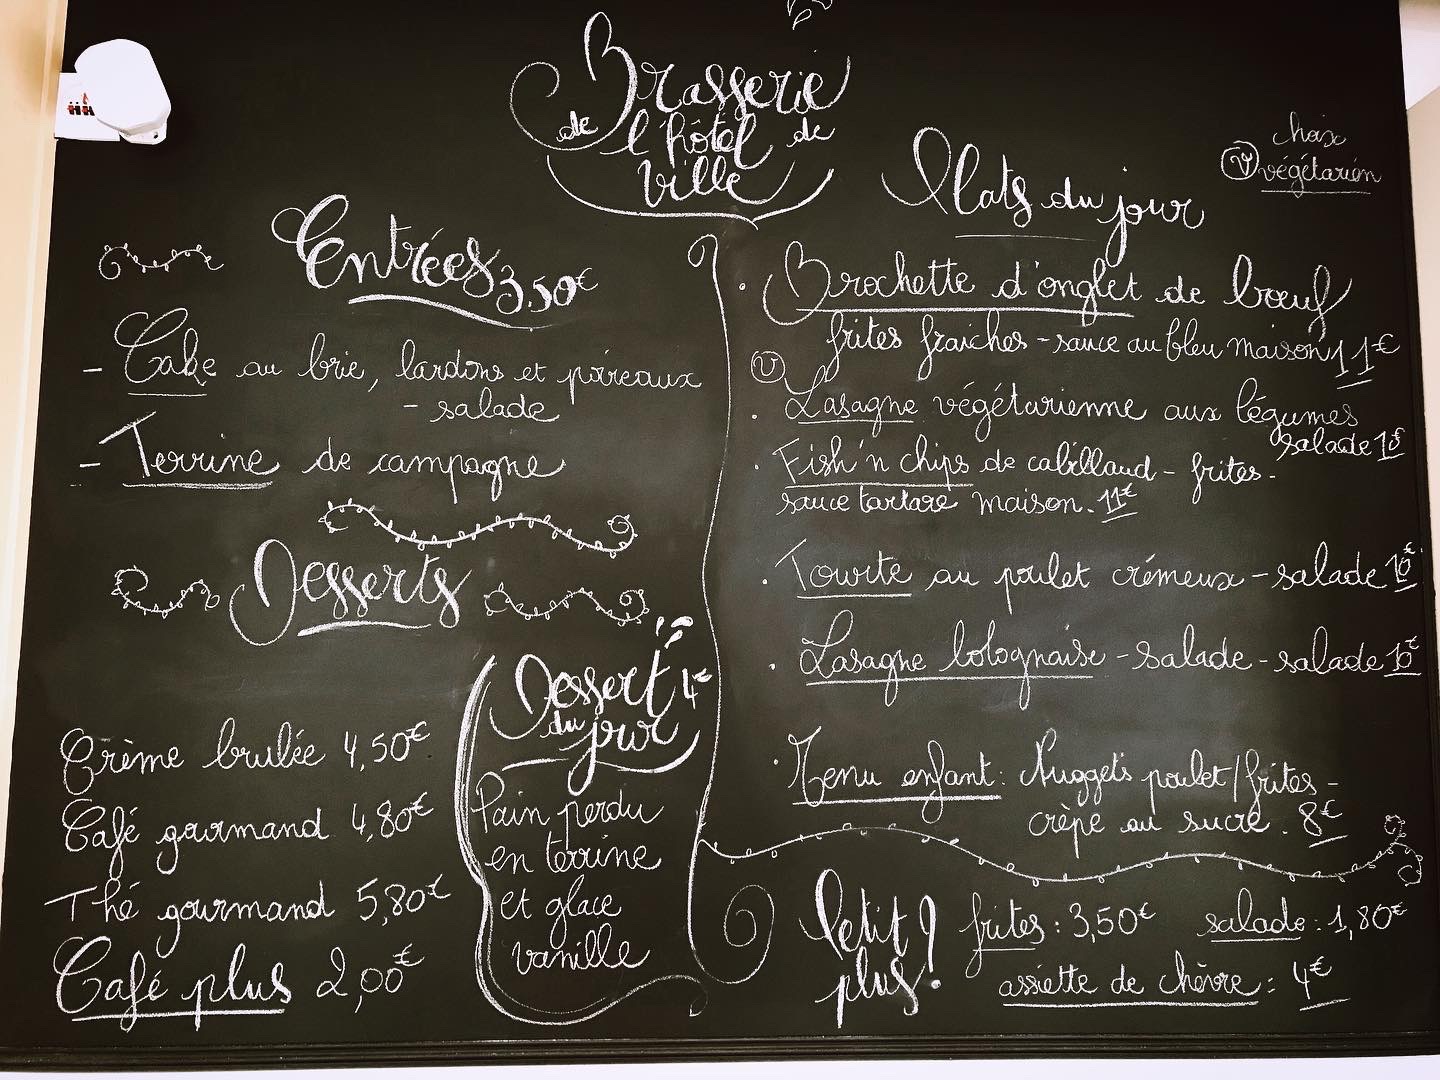 Brasserie
de l'hôtel de
ville
Entrées 3.50€
- Cake au brie, lardons et poireaux
- salade
- Terrine de campagne
Desserts
Crème brulée 4,50€
Café gourmand 4,80€
Thé gourmand 5,80€
Café plus 2,00€
Dessert 4€
du jour
Pain perdu
en terrine
et glace
vanille
choix
(v) végétarien
Plats du jour
. Brochette d'onglet de bœuf
frites fraiches - sauce au bleu maison 11€
(v)
. Lasagne végétarienne aux légumes
salade 10€
. Fish'n chips de cabillaud - frites -
sauce tartare maison. 11€
. Tourte au poulet crémeux - salade 10€
. Lasagne bolognaise - salade - salade 10€
. Menu enfant: Nuggets poulet/frites -
crèpe au sucre. 8€
Petit
plus!
frites : 3,50€ salade : 1,80€
assiette de chèvre : 4€